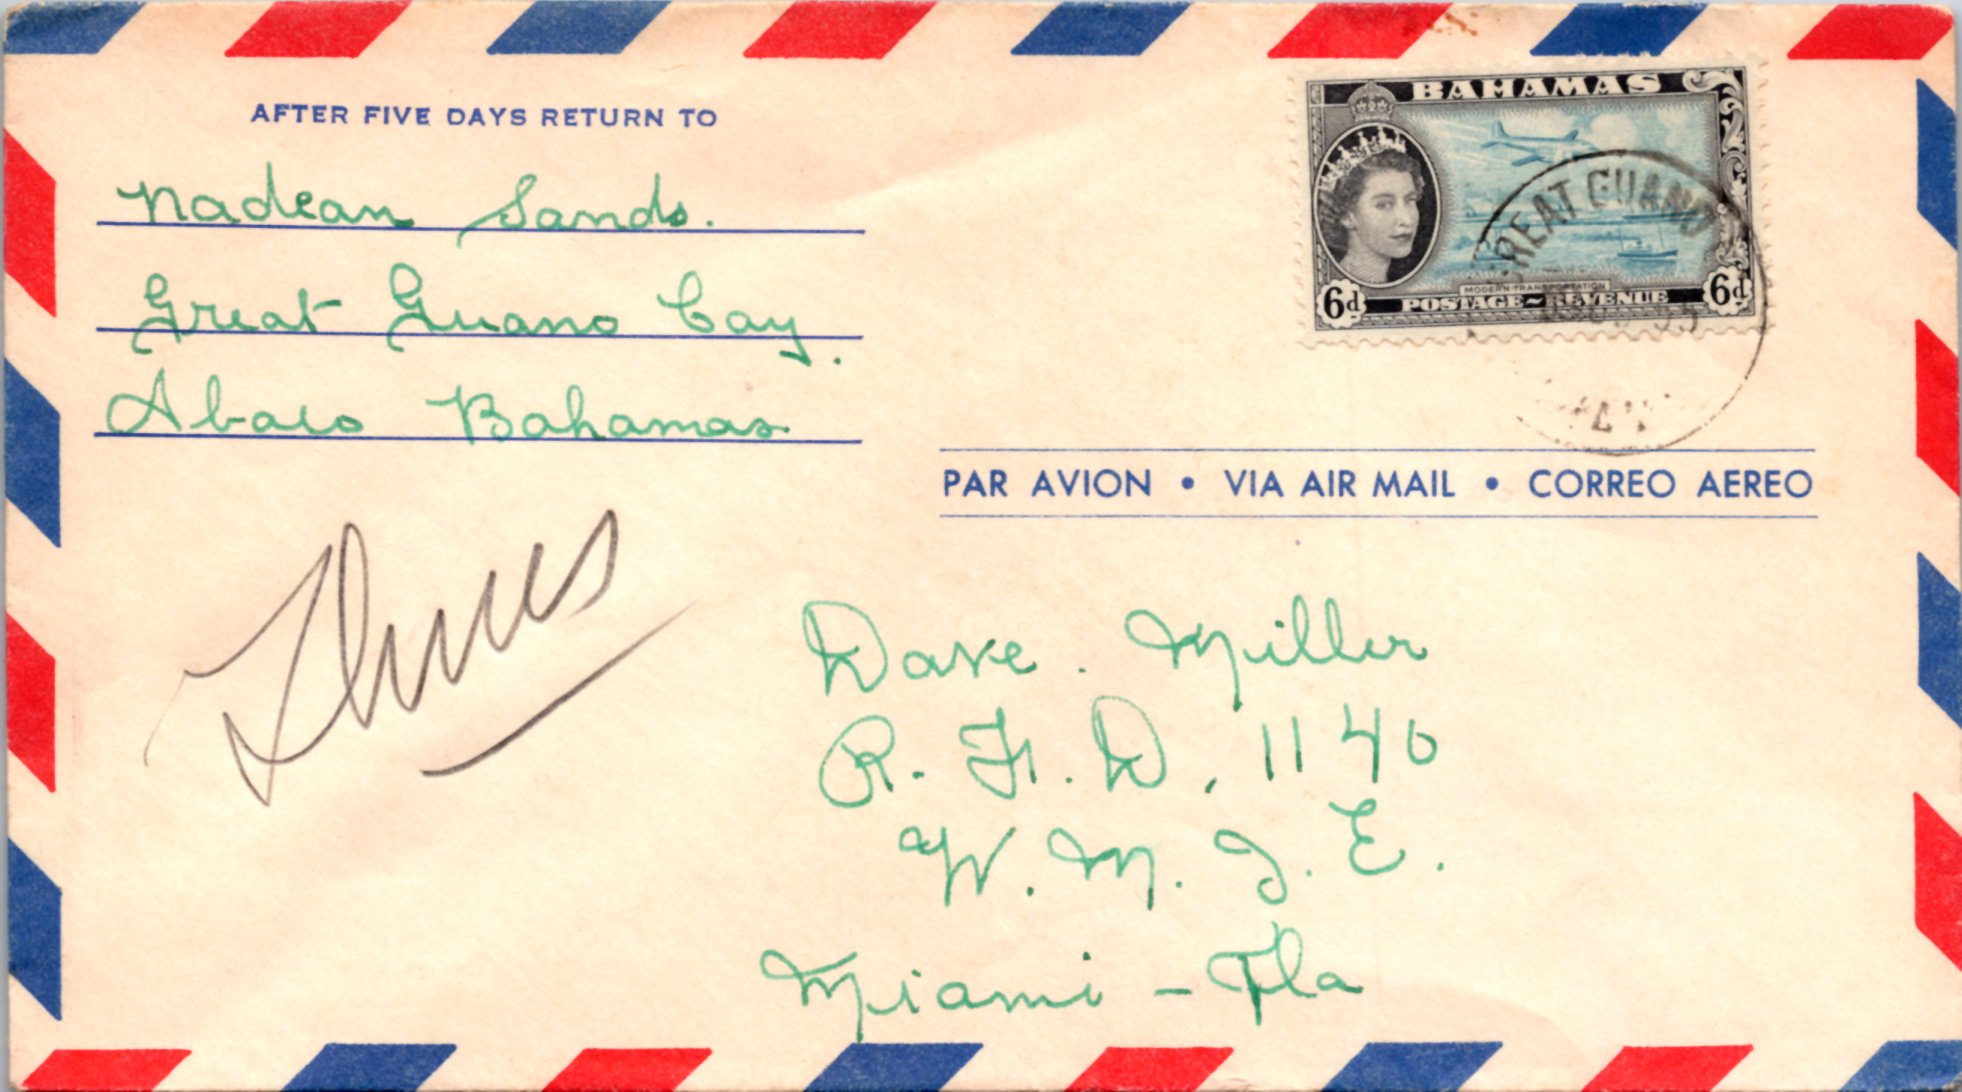 AFTER FIVE DAYS RETURN TO
Nadean Sands.
Great Guano Cay.
Abaco Bahamas
BAHAMAS
MODERN TRANSPORTATION
6d POSTAGE~REVENUE 6d
REAT GUANO
PAR AVION • VIA AIR MAIL • CORREO AEREO
Thurs
Dave. Miller
R. F. D, 1140
W. M. I. E.
Miami - Fla